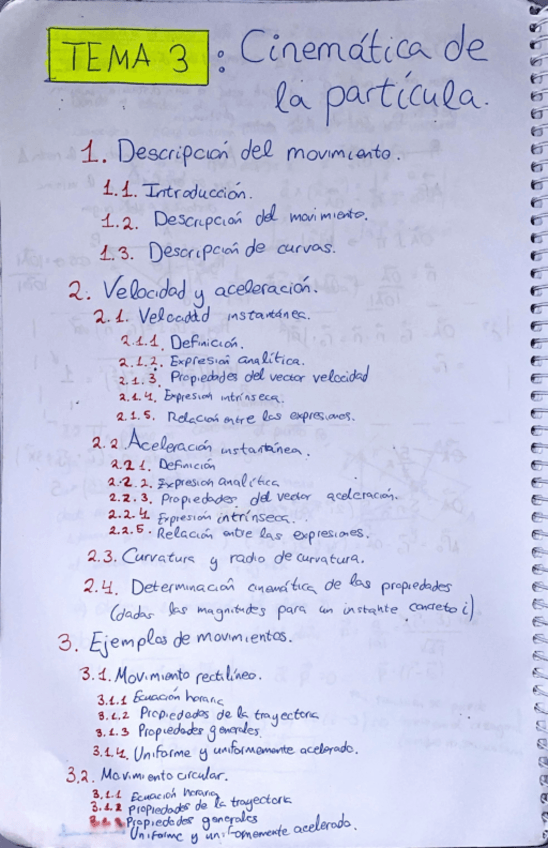 TEMA 3 : Cinemática de
la partícula.
1. Descripción del movimiento.
1.1. Introducción.
1.2. Descripción del movimiento.
1.3. Descripción de curvas.
2. Velocidad y aceleración.
2.1. Velocidad instantánea.
2.1.1. Definición.
2.1.2. Expresión analítica.
2.1.3. Propiedades del vector velocidad
2.1.4. Expresión intrínseca.
2.1.5. Relación entre las expresiones.
2.2. Aceleración instantánea.
2.2.1. Definición
2.2.2. Expresión analítica
2.2.3. Propiedades del vector aceleración.
2.2.4 Expresión intrínseca.
2.2.5. Relación entre las expresiones.
2.3. Curvatura y radio de curvatura.
2.4. Determinación cinemática de las propiedades
(dadas las magnitudes para un instante concreto i)
3. Ejemplos de movimientos.
3.1. Movimiento rectilíneo.
3.1.1 Ecuación horaria
3.1.2 Propiedades de la trayectoria
3.1.3 Propiedades generales
3.1.4. Uniforme y uniformemente acelerado.
3.2. Movimiento circular.
3.1.1 Ecuación horaria
3.1.2 Propiedades de la trayectoria
Propiedades generales
Uniforme y uniformemente acelerado.